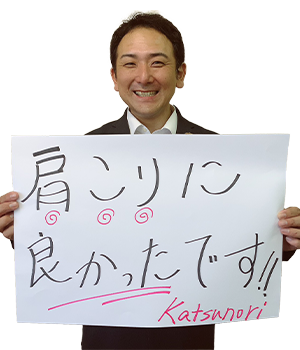 肩こりに
良かったです!!
Katsunori